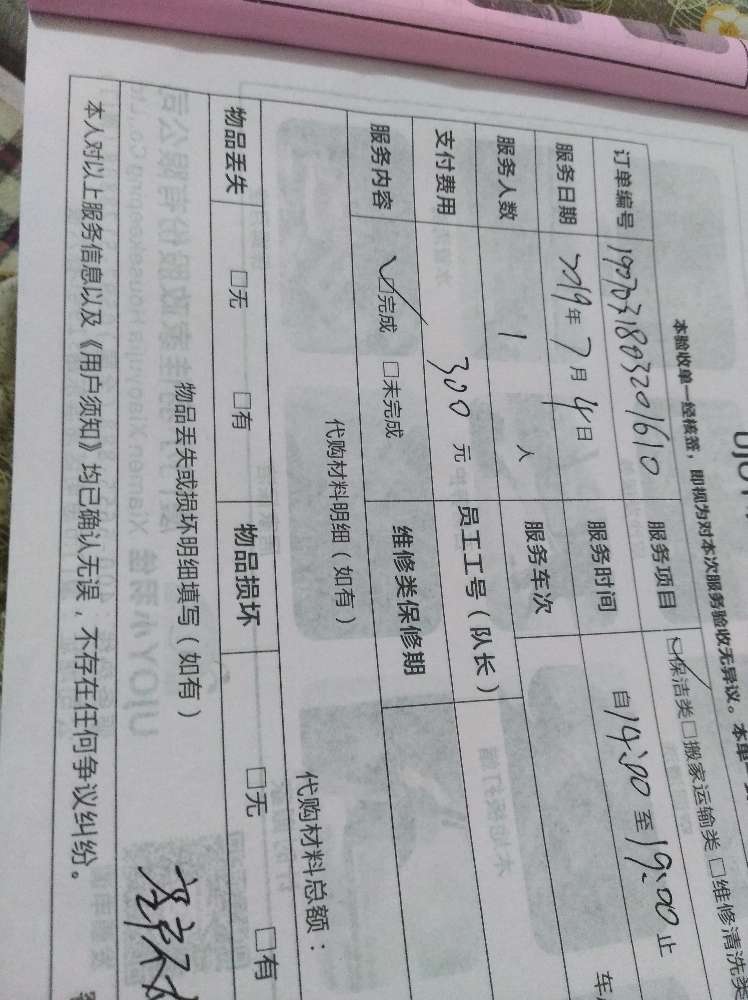 本验收单一经核签，即视为对本次服务验收无异议。本单
订单编号 1907031803201610 服务项目 保洁类□搬家运输类□维修清洗类
服务日期 2019年7月4日 服务时间 自14:00至19:00止
服务人数 1人 服务车次 车
支付费用 300元 员工工号（队长）
服务内容 □完成 □未完成 维修类保修期
代购材料明细（如有）
代购材料总额：
物品丢失 □无 □有 物品损坏 □无 □有
物品丢失或损坏明细填写（如有）
本人对以上服务信息以及《用户须知》均已确认无误，不存在任何争议纠纷。